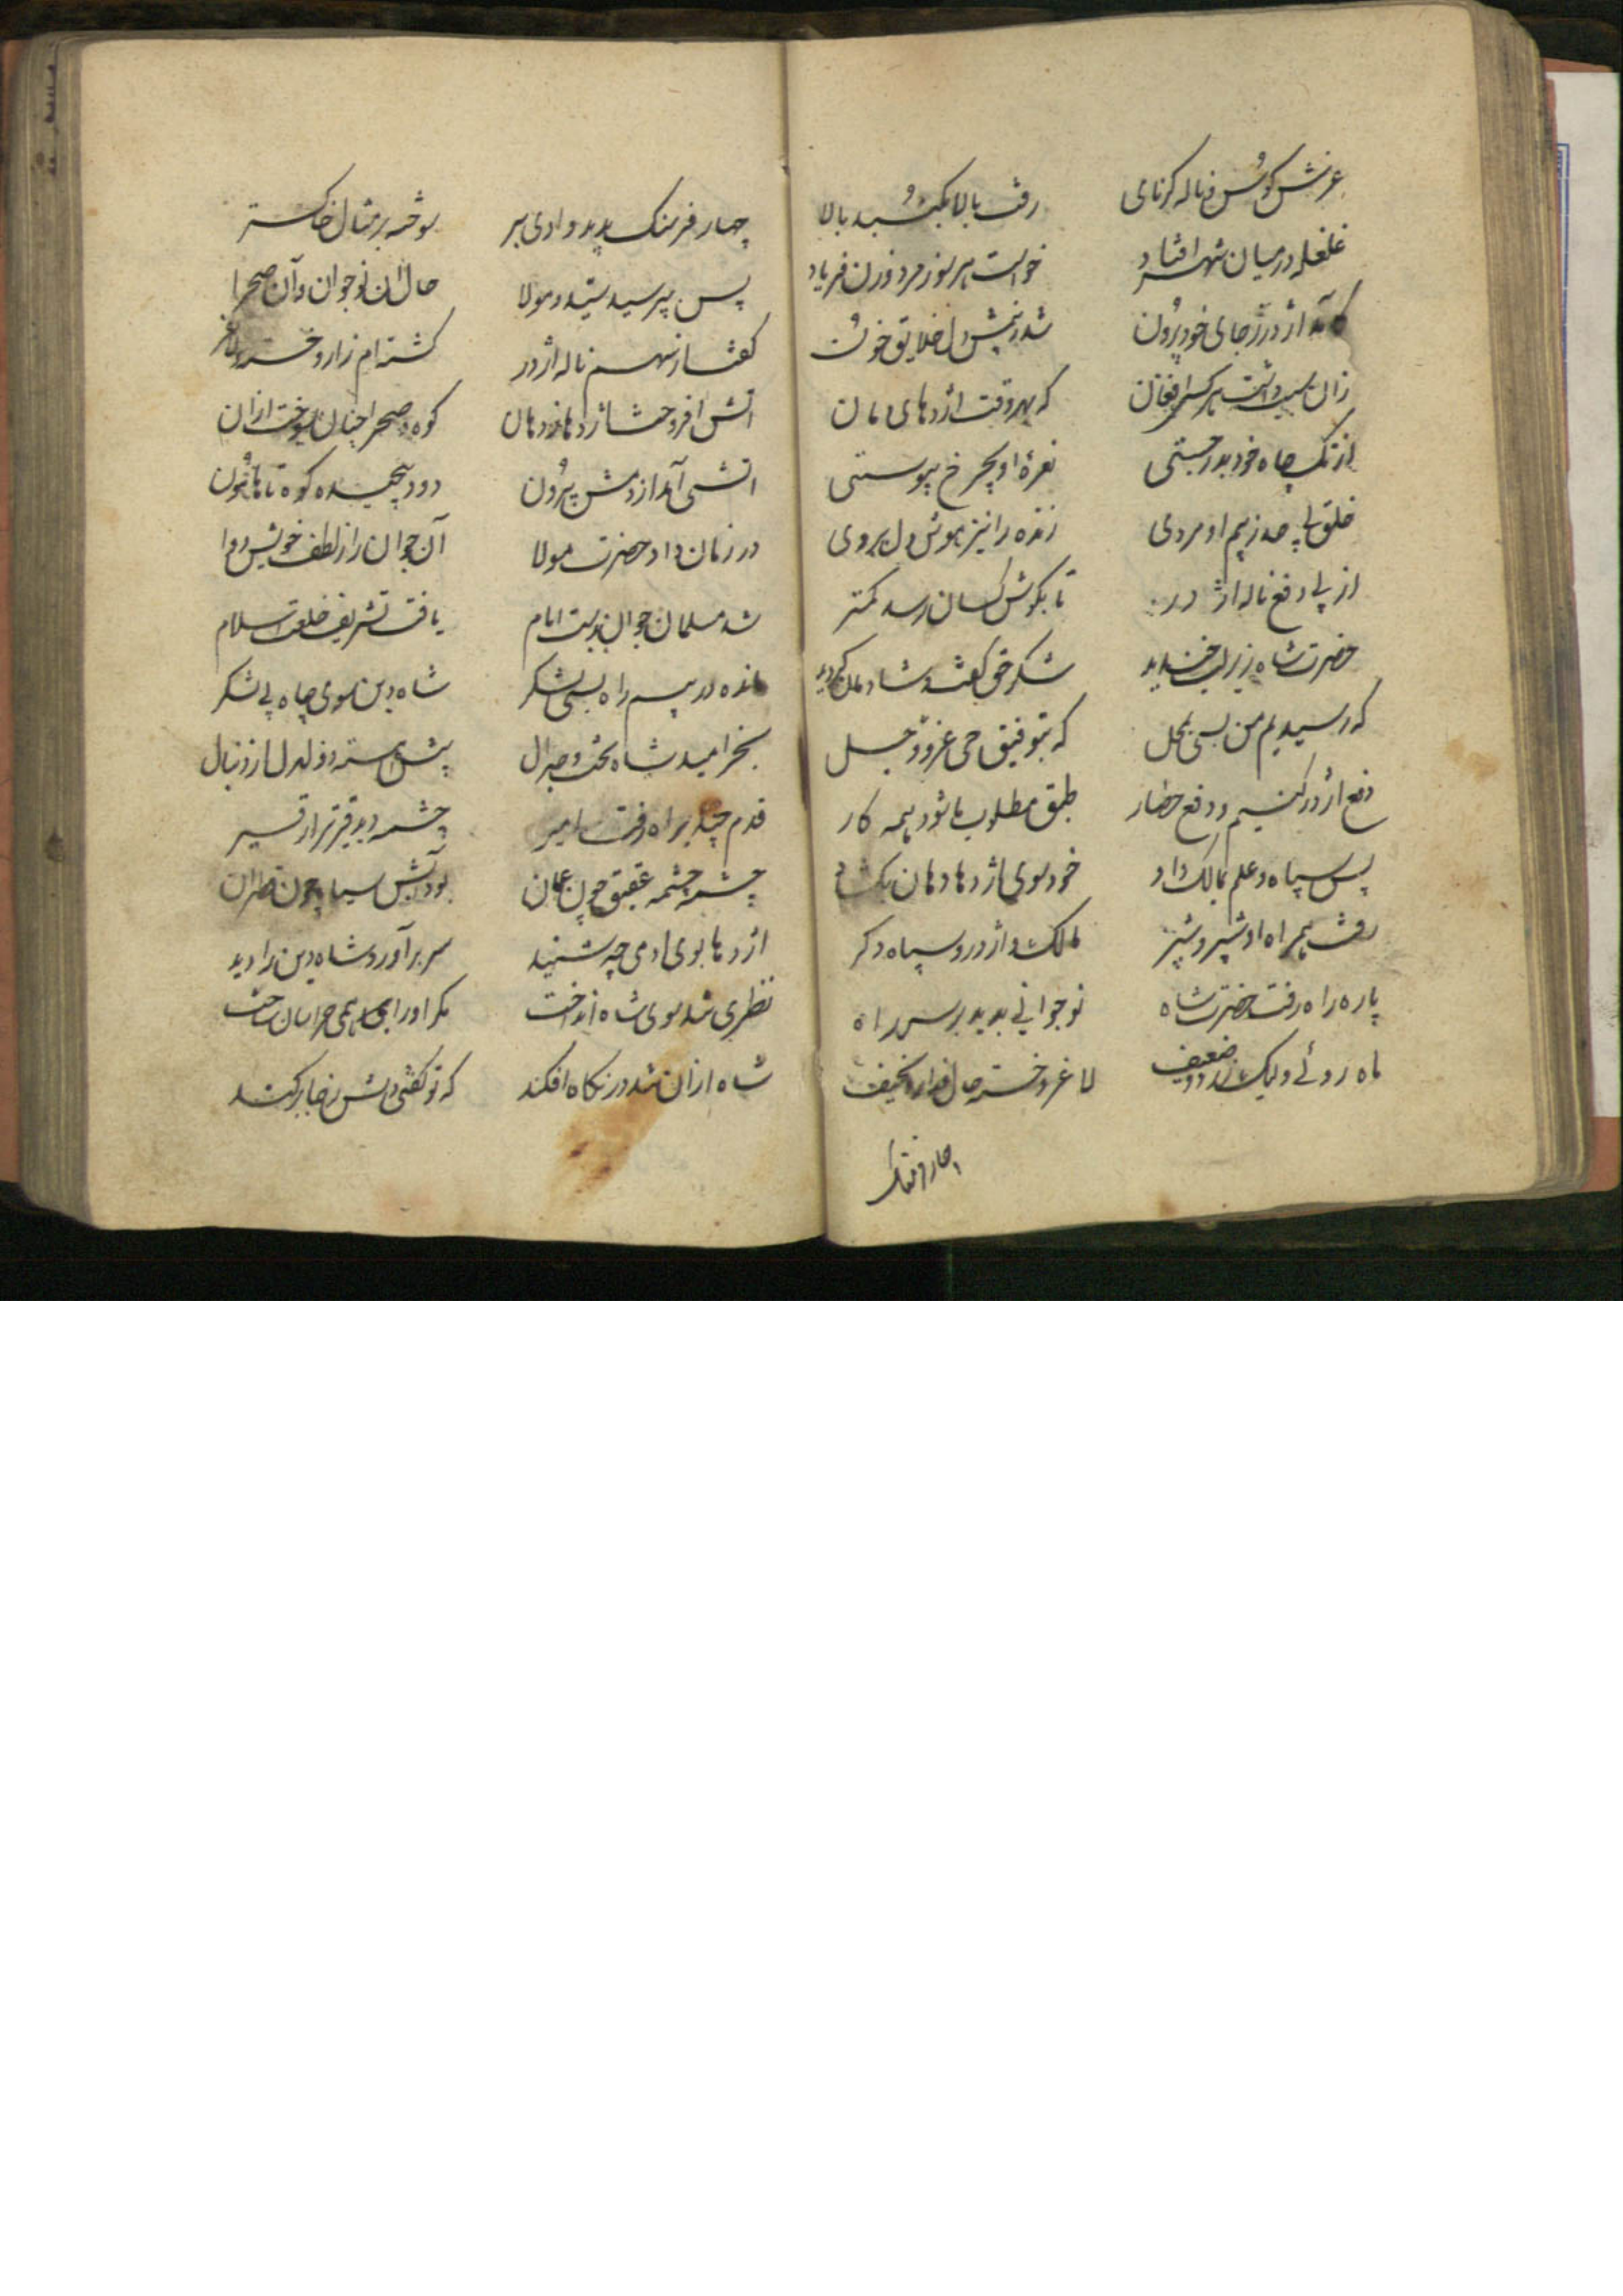 غرش کوس و ناله کرنای رفت بالا بکنبد بالا
غلغله در میان شهر افتاد خواست هر سو ز مرد و زن فریاد
که آمد اژدر ز جای خود برون شد ز بیمش دل خلایق خون
زان سبب داشت هر کسی افغان که بهر وقت اژدهای دمان
از تک چاه خود بدر جستی نعره او بچرخ پیوستی
خلق بی حد ز بیم او مردی زنده را نیز هوش دل بردی
از پی دفع ناله اژدر تا بکوش کسان رسد کمتر
حضرت شاه زیر لب خندید شکر حق گفت و شادمان گردید
که رسیدیم من بسی بمحل که بتوفیق حی عز و جل
دفع اژدر کنیم و دفع حصار طبق مطلوب ما شود همه کار
پس سپاه و علم بمالک داد خود سوی اژدها دهان بکشاد
رفت همراه او شبیر و شبر مالک و اژدر و سپاه دکر
پاره راه رفت حضرت شاه نوجوانی بدید بر سر راه
ماه روئے ولیک زرد و ضعیف لاغر و خسته حال و زار و نحیف
چهار فرسنک بدید وادی بر سوخته بر مثال خاکستر
پس بپرسید سید و مولا حال آن نوجوان و آن صحرا
گفت از سهم ناله اژدر کشته ام زار و خسته و لاغر
اتش افروخت اژدها ز دهان کوه و صحرا چنان بسوخت ازان
اتشی آمد از دمش بیرون دود پیچیده کوه تا هامون
در زمان داد حضرت مولا آن جوان را ز لطف خویش دوا
شد مسلمان جوان بدست امام یافت تشریف خلعت اسلام
مانده در بیم راه بسی لشکر شاه دین سوی چاه بی لشکر
بخرامید شاه بخت و جدال پیش استر و دلدل از دنبال
قدم چند براه رفت امیر چشمه دید قیرتر از قیر
چشمه چشمه عمیق چون عمان بود آبش سیاه چون قطران
اژدها بوی ادمی چه شنید سر برآورد و شاه دین را دید
نظری شد سوی شاه انداخت مکر او را همی هراسان ساخت
شاه ازان شد در نکاه افکند که تو گفتی دلش ز جا برکند